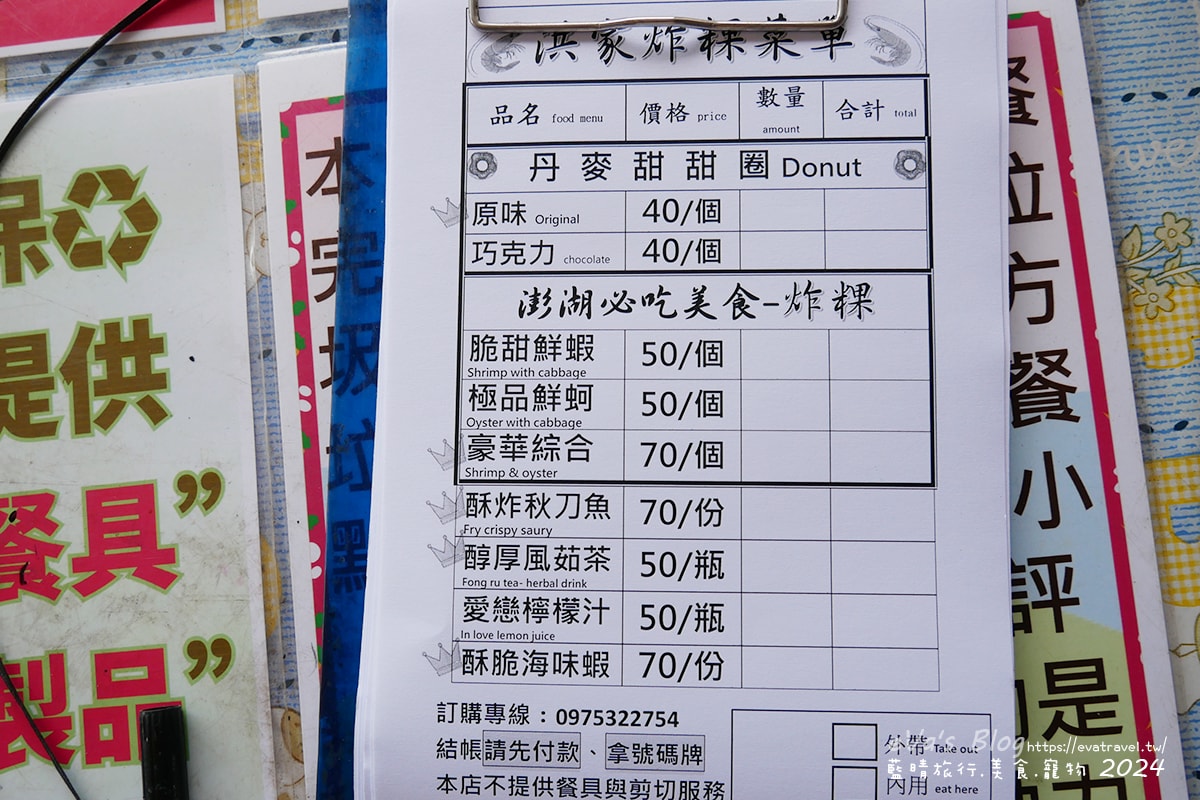 洪家炸粿菜單
品名 food menu 價格 price 數量 amount 合計 total
丹麥甜甜圈 Donut
原味 Original 40/個
巧克力 chocolate 40/個
澎湖必吃美食-炸粿
脆甜鮮蝦 50/個
Shrimp with cabbage
極品鮮蚵 50/個
Oyster with cabbage
豪華綜合 70/個
Shrimp & oyster
酥炸秋刀魚 70/份
Fry crispy saury
醇厚風茹茶 50/瓶
Fong ru tea- herbal drink
愛戀檸檬汁 50/瓶
In love lemon juice
酥脆海味蝦 70/份
訂購專線：0975322754
結帳請先付款、拿號碼牌
本店不提供餐具與剪切服務
外帶 Take out
內用 eat here
保
提供
餐具”
製品”
本
完
圾
垃
黑
餐
位
方
餐
小
評
是
Eva's Blog https://evatravel.tw/
藍晴旅行.美食.寵物 2024